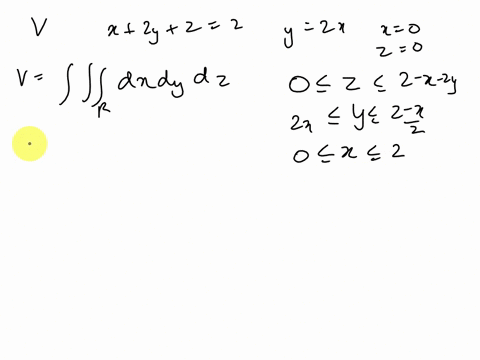 V x + 2y + z = 2 y = 2x x = 0
z = 0
V = ∫∫∫_R dx dy dz 0 ≤ z ≤ 2-x-2y
2x ≤ y ≤ 2-x/2
0 ≤ x ≤ 2